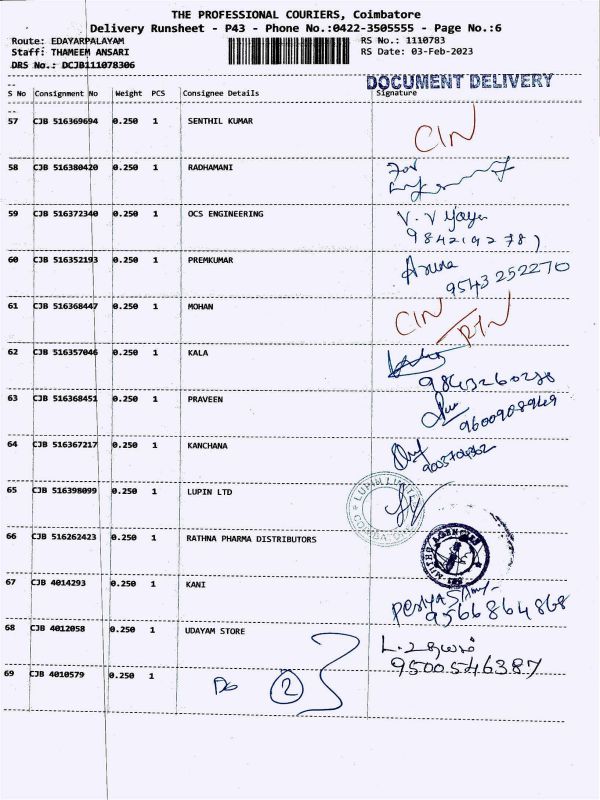 THE PROFESSIONAL COURIERS, Coimbatore
Delivery Runsheet - P43 - Phone No.:0422-3505555 - Page No.:6
Route: EDAYARPALAYAM RS No.: 1110783
Staff: THAMEEM ANSARI RS Date: 03-Feb-2023
DRS No.: DCJB111078306
DOCUMENT DELIVERY
S No Consignment No Weight PCS Consignee Details Signature
57 CJB 516369694 0.250 1 SENTHIL KUMAR CIN
58 CJB 516380420 0.250 1 RADHAMANI For
59 CJB 516372340 0.250 1 OCS ENGINEERING V.V
60 CJB 516352193 0.250 1 PREMKUMAR Aruna
9543252270
61 CJB 516368447 0.250 1 MOHAN CIN
62 CJB 516357046 0.250 1 KALA
63 CJB 516368451 0.250 1 PRAVEEN
9600908949
64 CJB 516367217 0.250 1 KANCHANA
65 CJB 516398099 0.250 1 LUPIN LTD LUPIN
66 CJB 516262423 0.250 1 RATHNA PHARMA DISTRIBUTORS MUTHU AGENCIES
67 CJB 4014293 0.250 1 KANI
9566864868
68 CJB 4012058 0.250 1 UDAYAM STORE
9500546387
69 CJB 4010579 0.250 1 Do 2